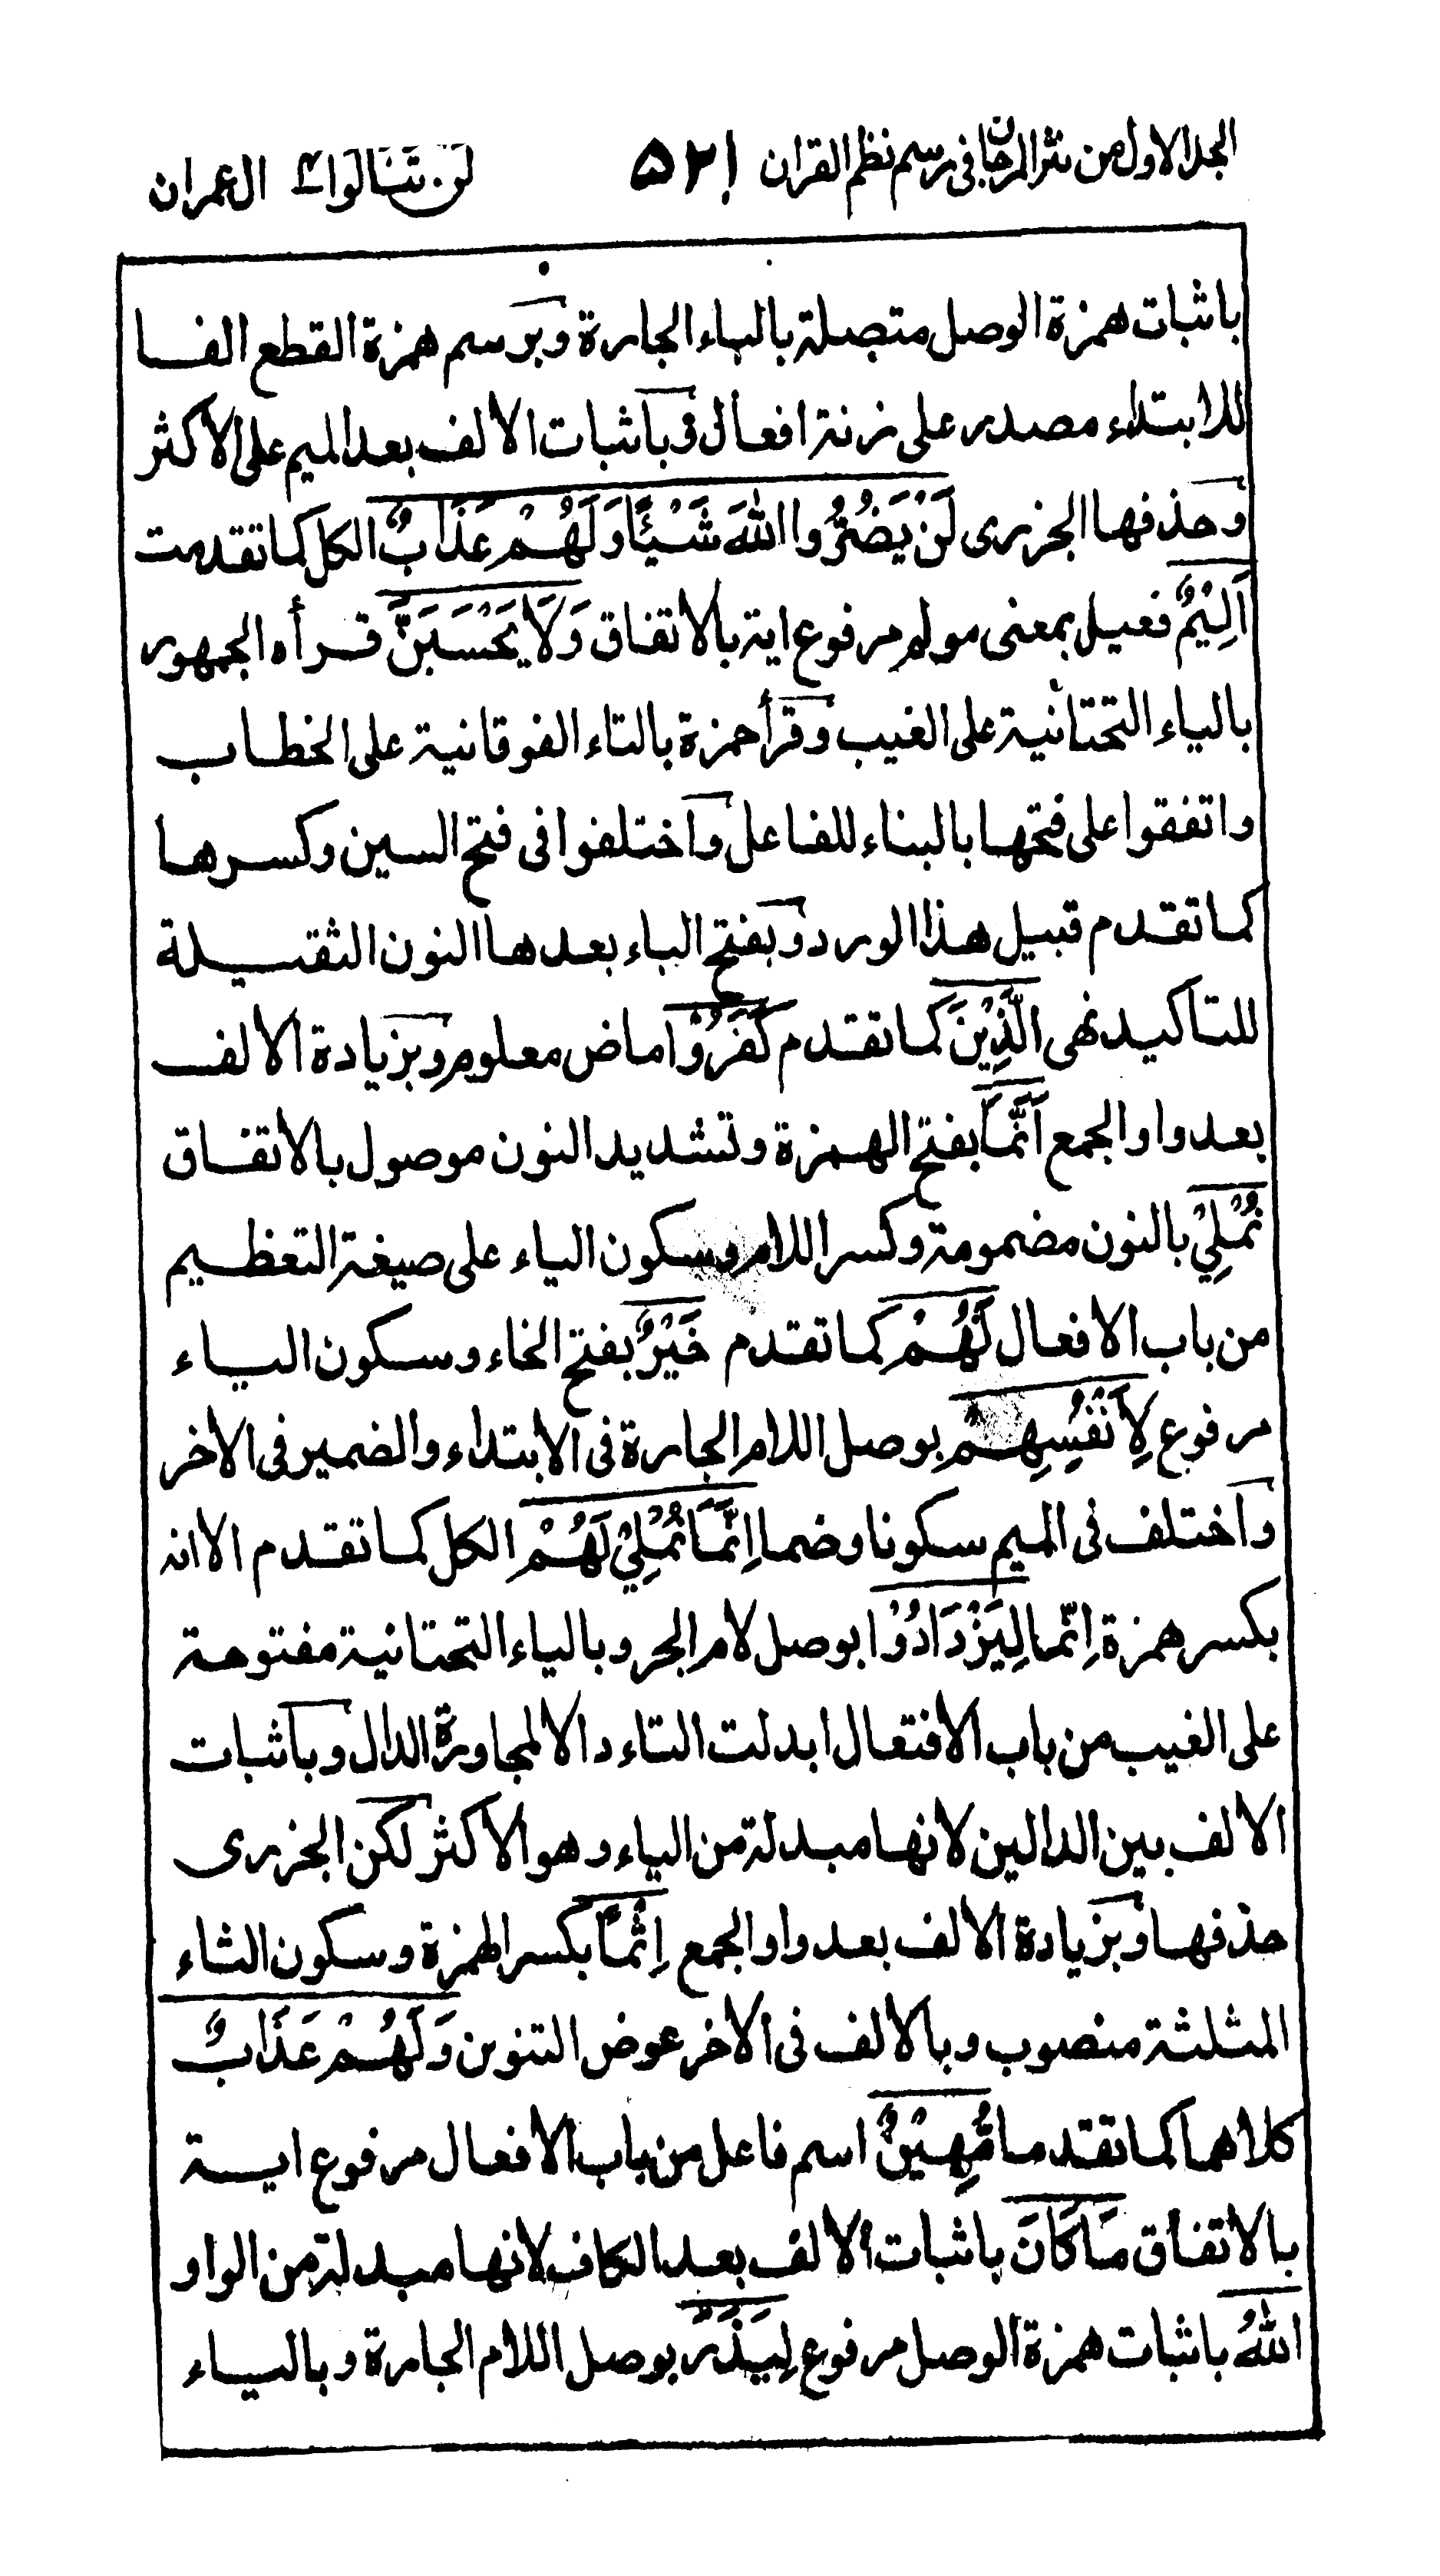 الجلد الاول من نثر المرجان فى رسم نظم القران ٥٢١ لن تنالوا ٤ ال عمران
باثبات همزة الوصل متصلة بالباء الجارة وبرسم همزة القطع الفا
للابتداء مصدر على زنة افعال فى باثبات الالف بعد الميم على الاكثر
وحذفها الجزرى لَنْ يَضُرُّوا اللّٰهَ شَيْئًا وَلَهُمْ عَذَابٌ الكل كما تقدمت
اَلِيْمٌ فعيل بمعنى مولم مرفوع اية بالاتفاق وَلَا يَحْسَبَنَّ قرأه الجمهور
بالياء التحتانية على الغيب وقرأ حمزة بالتاء الفوقانية على الخطاب
واتفقوا على فتحها بالبناء للفاعل واختلفوا فى فتح السين وكسرها
كما تقدم قبيل هذا الورد وبفتح الباء بعدها النون الثقيلة
للتاكيد نهى الَّذِيْنَ كما تقدم كَفَرُوْا ماض معلوم وبزيادة الالف
بعد واو الجمع اَنَّمَا بفتح الهمزة وتشديد النون موصول بالاتفاق
نُمْلِيْ بالنون مضمومة وكسر اللام وسكون الياء على صيغة التعظيم
من باب الافعال لَهُمْ كما تقدم خَيْرٌ بفتح الخاء وسكون الياء
مرفوع لِاَنْفُسِهِمْ بوصل اللام الجارة فى الابتداء والضمير فى الاخر
واختلف فى الميم سكونا وضما اِنَّمَا نُمْلِيْ لَهُمْ الكل كما تقدم الا انه
بكسر همزة اِنَّما لِيَزْدَادُوْا بوصل لام الجر وبالياء التحتانية مفتوحة
على الغيب من باب الافتعال ابدلت التاء دالا لمجاورة الدال وباثبات
الالف بين الدالين لانها مبدلة من الياء وهو الاكثر لكن الجزرى
حذفها وبزيادة الالف بعد واو الجمع اِثْمًا بكسر الهمزة وسكون الثاء
المثلثة منصوب وبالالف فى الاخر عوض التنوين وَلَهُمْ عَذَابٌ
كلاهما كما تقدما مُّهِيْنٌ اسم فاعل من باب الافعال مرفوع اية
بالاتفاق مَا كَانَ باثبات الالف بعد الكاف لانها مبدلة من الواو
اللّٰهُ باثبات همزة الوصل مرفوع لِيَذَرَ بوصل اللام الجارة وبالياء